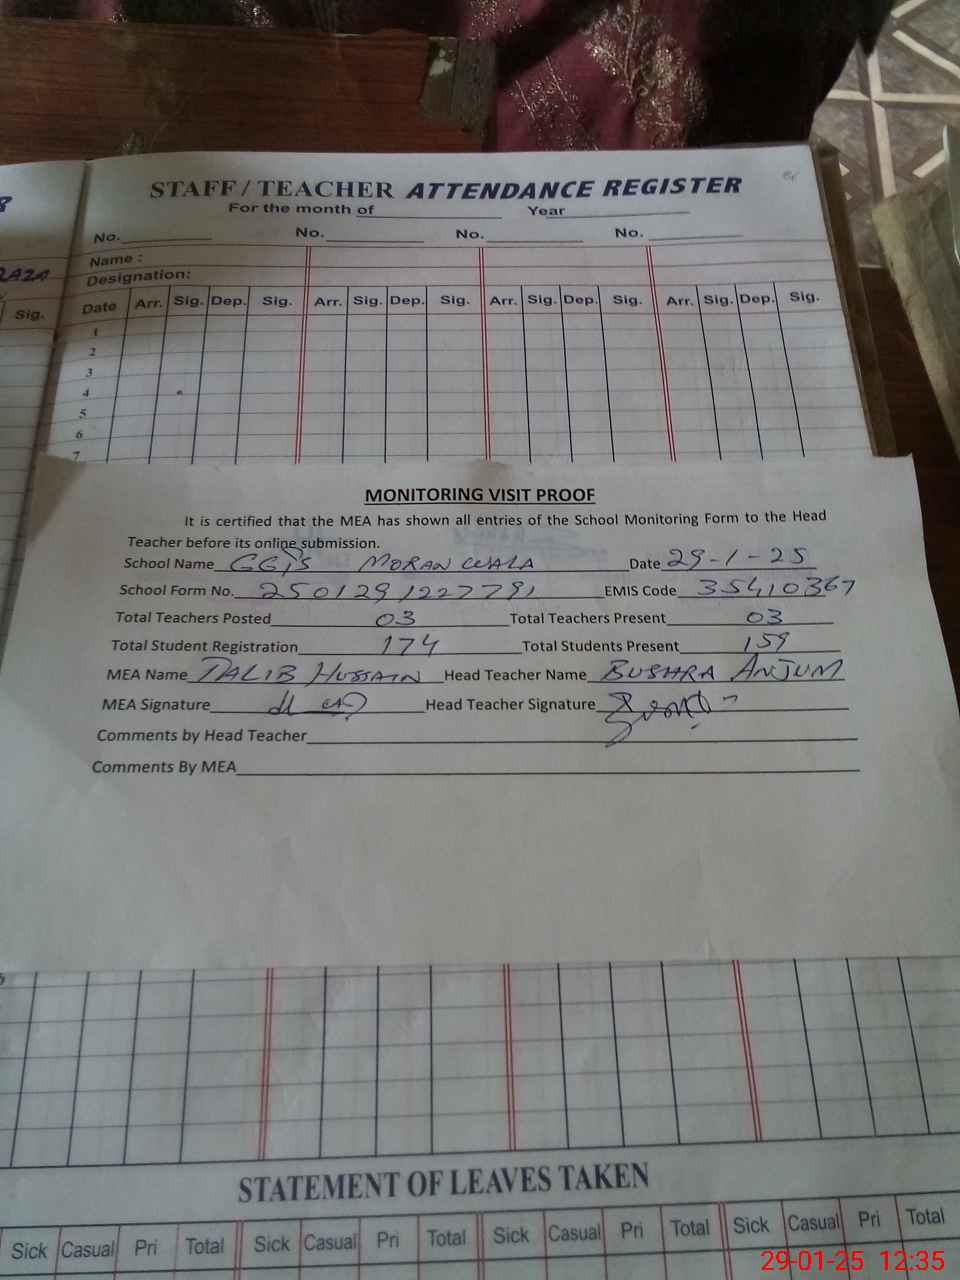 STAFF / TEACHER ATTENDANCE REGISTER
For the month of Year
No. No. No. No.
Name :
Designation:
Date Arr. Sig. Dep. Sig. Arr. Sig. Dep. Sig. Arr. Sig. Dep. Sig. Arr. Sig. Dep. Sig.
Sig.
1
2
3
4
5
6
7
MONITORING VISIT PROOF
It is certified that the MEA has shown all entries of the School Monitoring Form to the Head
Teacher before its online submission.
School Name GGPS MORAN WALA Date 29-1-25
School Form No. 2501291227791 EMIS Code 35410367
Total Teachers Posted 03 Total Teachers Present 03
Total Student Registration 174 Total Students Present 159
MEA Name TALIB HUSSAIN Head Teacher Name BUSHRA ANJUM
MEA Signature Head Teacher Signature
Comments by Head Teacher
Comments By MEA
STATEMENT OF LEAVES TAKEN
Sick Casual Pri Total Sick Casual Pri Total Sick Casual Pri Total Sick Casual Pri Total
29-01-25 12:35